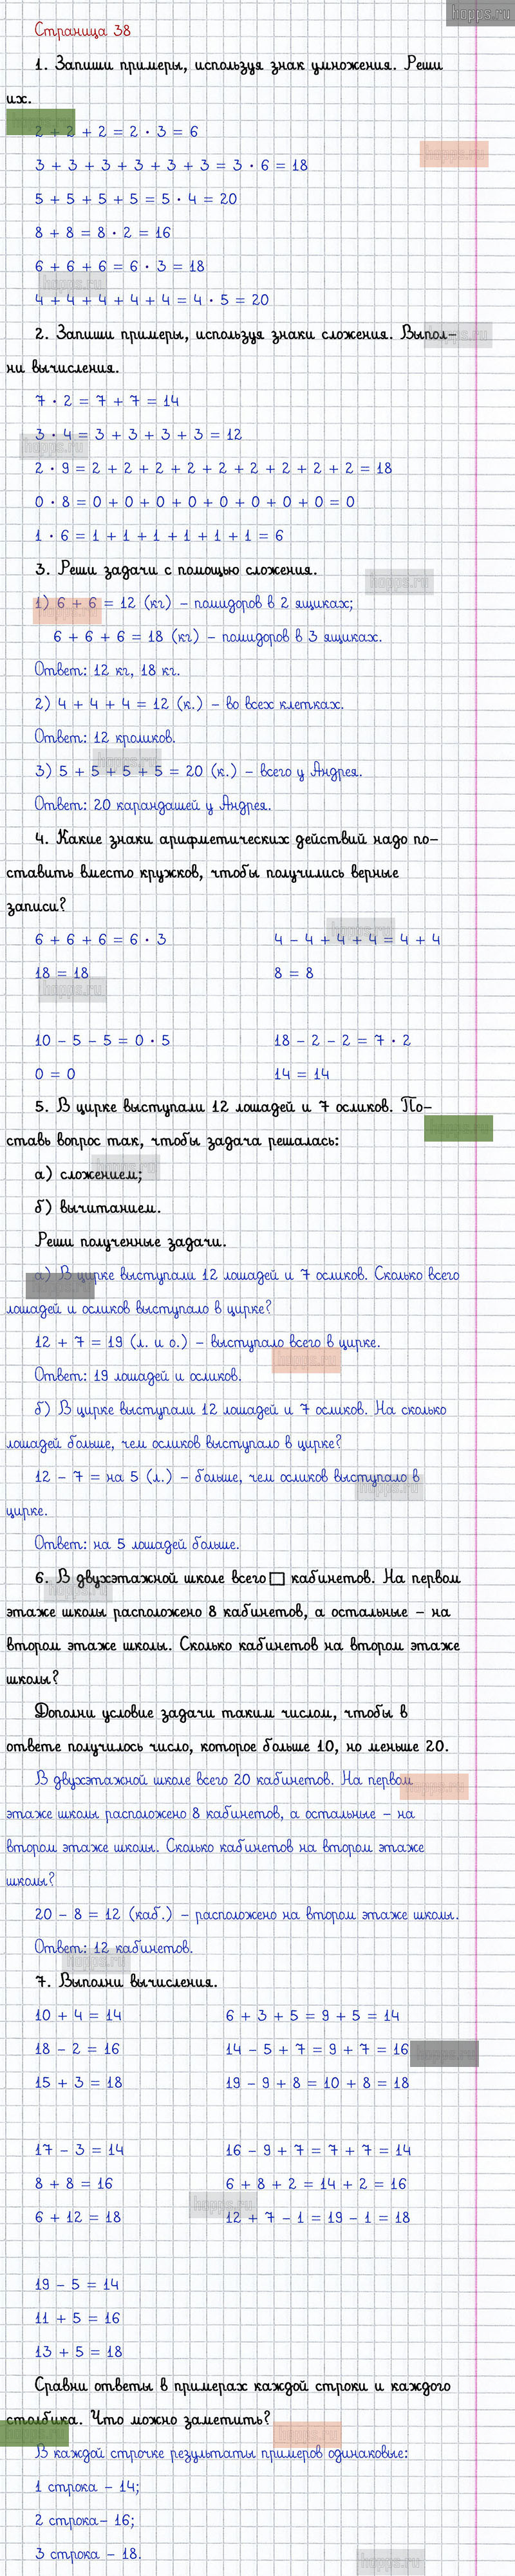 hopps.ru
Страница 38
1. Запиши примеры, используя знак умножения. Реши
их.
2 + 2 + 2 = 2 · 3 = 6
3 + 3 + 3 + 3 + 3 + 3 = 3 · 6 = 18
5 + 5 + 5 + 5 = 5 · 4 = 20
8 + 8 = 8 · 2 = 16
6 + 6 + 6 = 6 · 3 = 18
4 + 4 + 4 + 4 + 4 = 4 · 5 = 20
2. Запиши примеры, используя знаки сложения. Выпол–
ни вычисления.
7 · 2 = 7 + 7 = 14
3 · 4 = 3 + 3 + 3 + 3 = 12
2 · 9 = 2 + 2 + 2 + 2 + 2 + 2 + 2 + 2 + 2 = 18
0 · 8 = 0 + 0 + 0 + 0 + 0 + 0 + 0 + 0 = 0
1 · 6 = 1 + 1 + 1 + 1 + 1 + 1 = 6
3. Реши задачи с помощью сложения.
1) 6 + 6 = 12 (кг) – помидоров в 2 ящиках;
6 + 6 + 6 = 18 (кг) – помидоров в 3 ящиках.
Ответ: 12 кг, 18 кг.
2) 4 + 4 + 4 = 12 (к.) – во всех клетках.
Ответ: 12 кроликов.
3) 5 + 5 + 5 + 5 = 20 (к.) – всего у Андрея.
Ответ: 20 карандашей у Андрея.
4. Какие знаки арифметических действий надо по–
ставить вместо кружков, чтобы получились верные
записи?
6 + 6 + 6 = 6 · 3 4 – 4 + 4 + 4 = 4 + 4
18 = 18 8 = 8
10 – 5 – 5 = 0 · 5 18 – 2 – 2 = 7 · 2
0 = 0 14 = 14
5. В цирке выступали 12 лошадей и 7 осликов. По–
ставь вопрос так, чтобы задача решалась:
а) сложением;
б) вычитанием.
Реши полученные задачи.
а) В цирке выступали 12 лошадей и 7 осликов. Сколько всего
лошадей и осликов выступало в цирке?
12 + 7 = 19 (л. и о.) – выступало всего в цирке.
Ответ: 19 лошадей и осликов.
б) В цирке выступали 12 лошадей и 7 осликов. На сколько
лошадей больше, чем осликов выступало в цирке?
12 – 7 = на 5 (л.) – больше, чем осликов выступало в
цирке.
Ответ: на 5 лошадей больше.
6. В двухэтажной школе всего □ кабинетов. На первом
этаже школы расположено 8 кабинетов, а остальные – на
втором этаже школы. Сколько кабинетов на втором этаже
школы?
Дополни условие задачи таким числом, чтобы в
ответе получилось число, которое больше 10, но меньше 20.
В двухэтажной школе всего 20 кабинетов. На первом
этаже школы расположено 8 кабинетов, а остальные – на
втором этаже школы. Сколько кабинетов на втором этаже
школы?
20 – 8 = 12 (каб.) – расположено на втором этаже школы.
Ответ: 12 кабинетов.
7. Выполни вычисления.
10 + 4 = 14 6 + 3 + 5 = 9 + 5 = 14
18 – 2 = 16 14 – 5 + 7 = 9 + 7 = 16
15 + 3 = 18 19 – 9 + 8 = 10 + 8 = 18
17 – 3 = 14 16 – 9 + 7 = 7 + 7 = 14
8 + 8 = 16 6 + 8 + 2 = 14 + 2 = 16
6 + 12 = 18 12 + 7 – 1 = 19 – 1 = 18
19 – 5 = 14
11 + 5 = 16
13 + 5 = 18
Сравни ответы в примерах каждой строки и каждого
столбика. Что можно заметить?
В каждой строчке результаты примеров одинаковые:
1 строка – 14;
2 строка– 16;
3 строка – 18.